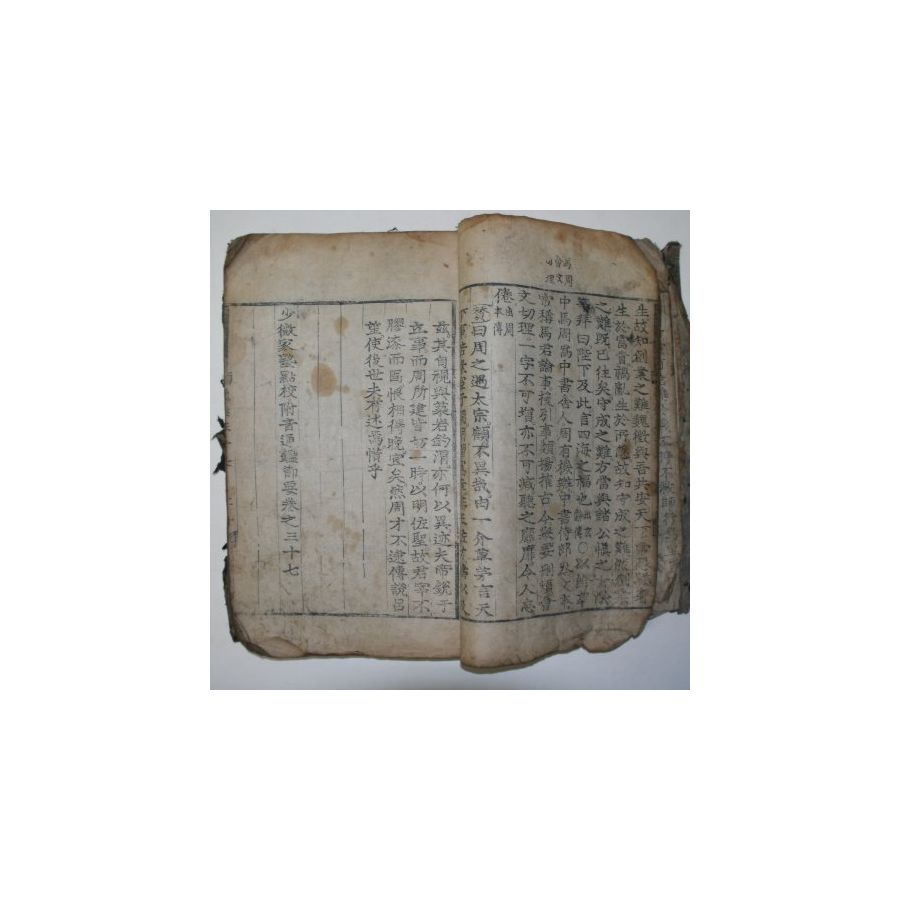 馬周
會文
切理
生故知創業之難魏徵與吾共安天下常恐驕奢
生於富貴禍亂生於所忽故知守成之難然創業
之難既已往矣守成之難方當與諸公慎之玄齡
等拜曰陛下及此言四海之福也
中馬周爲中書舍人周有機辯中書侍郎岑文本
常稱馬君論事援引事類揚搉古今擧要刪煩會
文切理一字不可增亦不可減聽之靡靡令人忘
倦出周本傳
贊曰周之遇太宗顧不異哉由一介草茅言天
茲其自視與築岩釣渭亦何以異迹夫帝銳于
立事而周所建皆切一時以明佐聖故君宰不
膠漆而固恨相得晚宜矣然周才不逮傳說呂
望使後世未有述焉惜乎
少微家塾點校附音通鑑節要卷之三十七